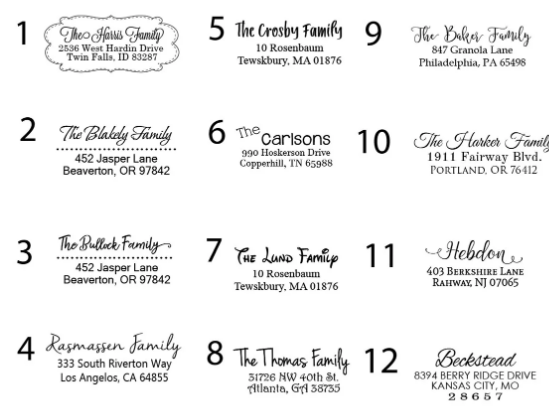 1
The Harris Family
2536 West Hardin Drive
Twin Falls, ID 83287
2
The Blakely Family
452 Jasper Lane
Beaverton, OR 97842
3
The Bullock Family
452 Jasper Lane
Beaverton, OR 97842
4
Rasmassen Family
333 South Riverton Way
Los Angelos, CA 64855
5
The Crosby Family
10 Rosenbaum
Tewskbury, MA 01876
6
The Carlsons
990 Hoskerson Drive
Copperhill, TN 65988
7
The Lund Family
10 Rosenbaum
Tewskbury, MA 01876
8
The Thomas Family
31726 NW 40th St.
Atlanta, GA 38735
9
The Baker Family
847 Granola Lane
Philadelphia, PA 65498
10
The Harker Family
1911 Fairway Blvd.
PORTLAND, OR 76412
11
Hebdon
403 BERKSHIRE LANE
RAHWAY, NJ 07065
12
Beckstead
8394 BERRY RIDGE DRIVE
KANSAS CITY, MO
28657